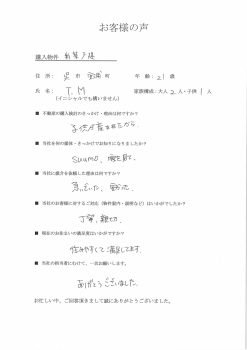 お客様の声
購入物件 新築戸建
住 所： 呉 市 町 年 齢： 21 歳
氏 名： T.M 家族構成：大人 2 人・子供 1 人
(イニシャルでも構いません)
■ 不動産の購入検討のきっかけ・理由は何ですか？
子供が産まれたから
■ 当社を何の媒体・きっかけでお知りになりましたか？
suumo、
■ 当社に仲介を依頼した理由は何ですか？
■ 当社のお客様に対するご対応（物件案内・説明など）はいかがでしたか？
丁寧、親切、
■ 現在のお住まいの満足度はいかがですか？
住みやすくて満足してます。
■ 当社の担当者にむけて、一言お願いします。
ありがとうございました。
お忙しい中、ご回答頂きまして誠にありがとうございました。